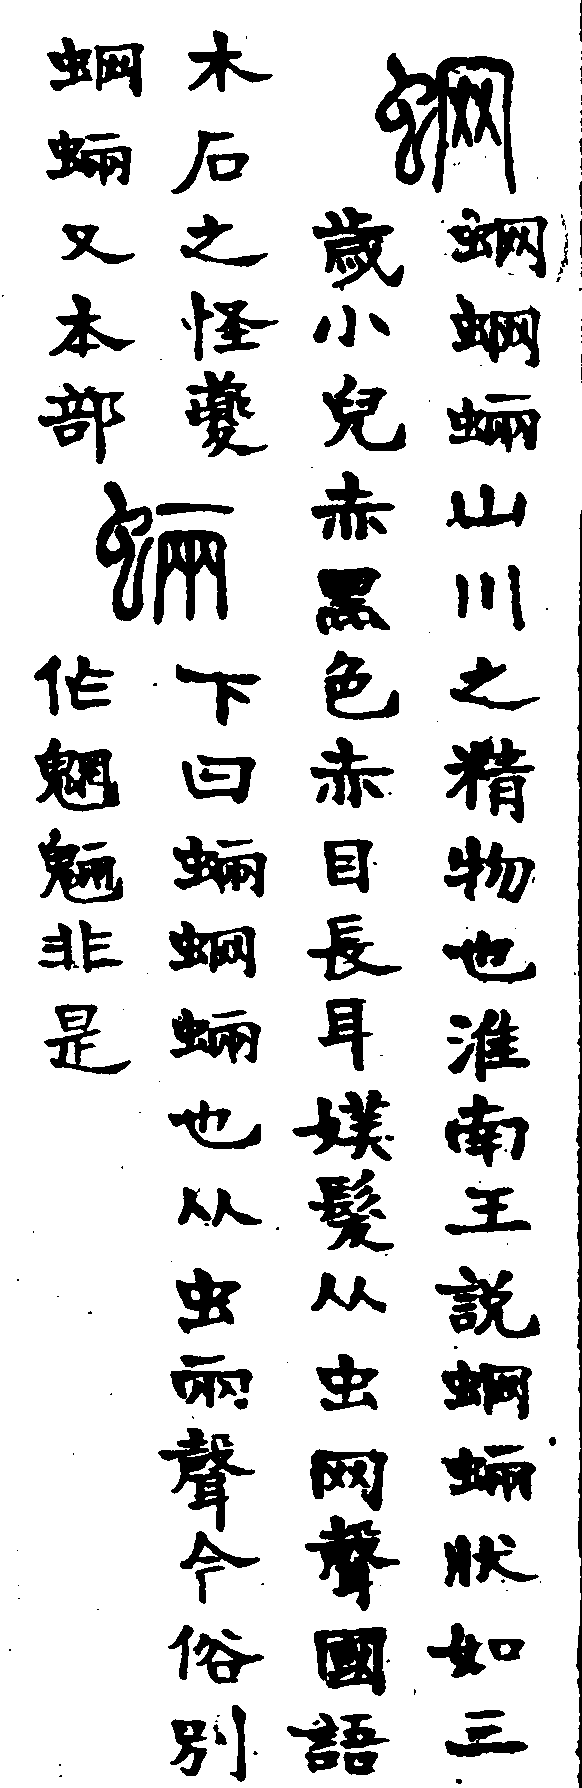 蛧
蛧蝄蜽山川之精物也淮南王說蝄蜽狀如三
歲小兒赤黑色赤目長耳媄髮从虫网聲國語
木石之怪夔
蝄蜽又本部
蜽
下曰蜽蝄蜽也从虫兩聲今俗別
作魍魎非是